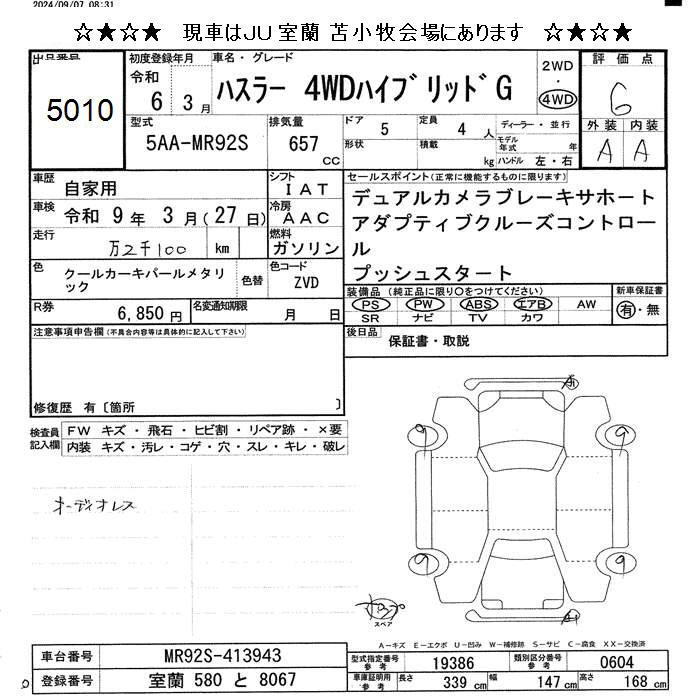 2024/09/07 08:31
☆★☆★ 現車はJU室蘭 苫小牧会場にあります ☆★☆★
出品番号 初度登録年月 車名・グレード 評価点
5010
令和 6 3月 ハスラー 4WDハイブリッドG 2WD ・ 4WD 6
型式 5AA-MR92S 排気量 657 cc ドア 5 定員 4 人 ディーラー・並行 外装 内装
形状 積載 kg モデル年式 年 ハンドル 左・右 A A
車歴 自家用 シフト IAT セールスポイント(正常に機能するものに限ります)
車検 令和 9年 3月(27日) 冷房 AAC デュアルカメラブレーキサホート
アダプティブクルーズコントロー
走行 万2千100 km 燃料 ガソリン ル
色 クールカーキパールメタリ
ック 色替 色コード ZVD プッシュスタート
装備品(純正品に限り○をつけてください) 新車保証書
R券 6,850円 名変通知期限 月 日 PS PW ABS エアB AW 有・無
SR ナビ TV カワ
注意事項申告欄(不具合内容等は具体的に記入して下さい) 後日品 保証書・取説
修復歴 有〔箇所 〕
検査員記入欄 FW キズ・飛石・ヒビ割・リペア跡・×要
内装 キズ・汚レ・コゲ・穴・スレ・キレ・破レ
オーディオレス
A1
9 9
9 9
A1
スペア
A−キズ E−エクボ U−凹み W−補修跡 S−サビ C−腐食 XX−交換済
車台番号 MR92S-413943 型式指定番号 参考 19386 類別区分番号 参考 0604
登録番号 室蘭 580 と 8067 車庫証明用 参考 長さ 339 cm 幅 147 cm 高さ 168 cm